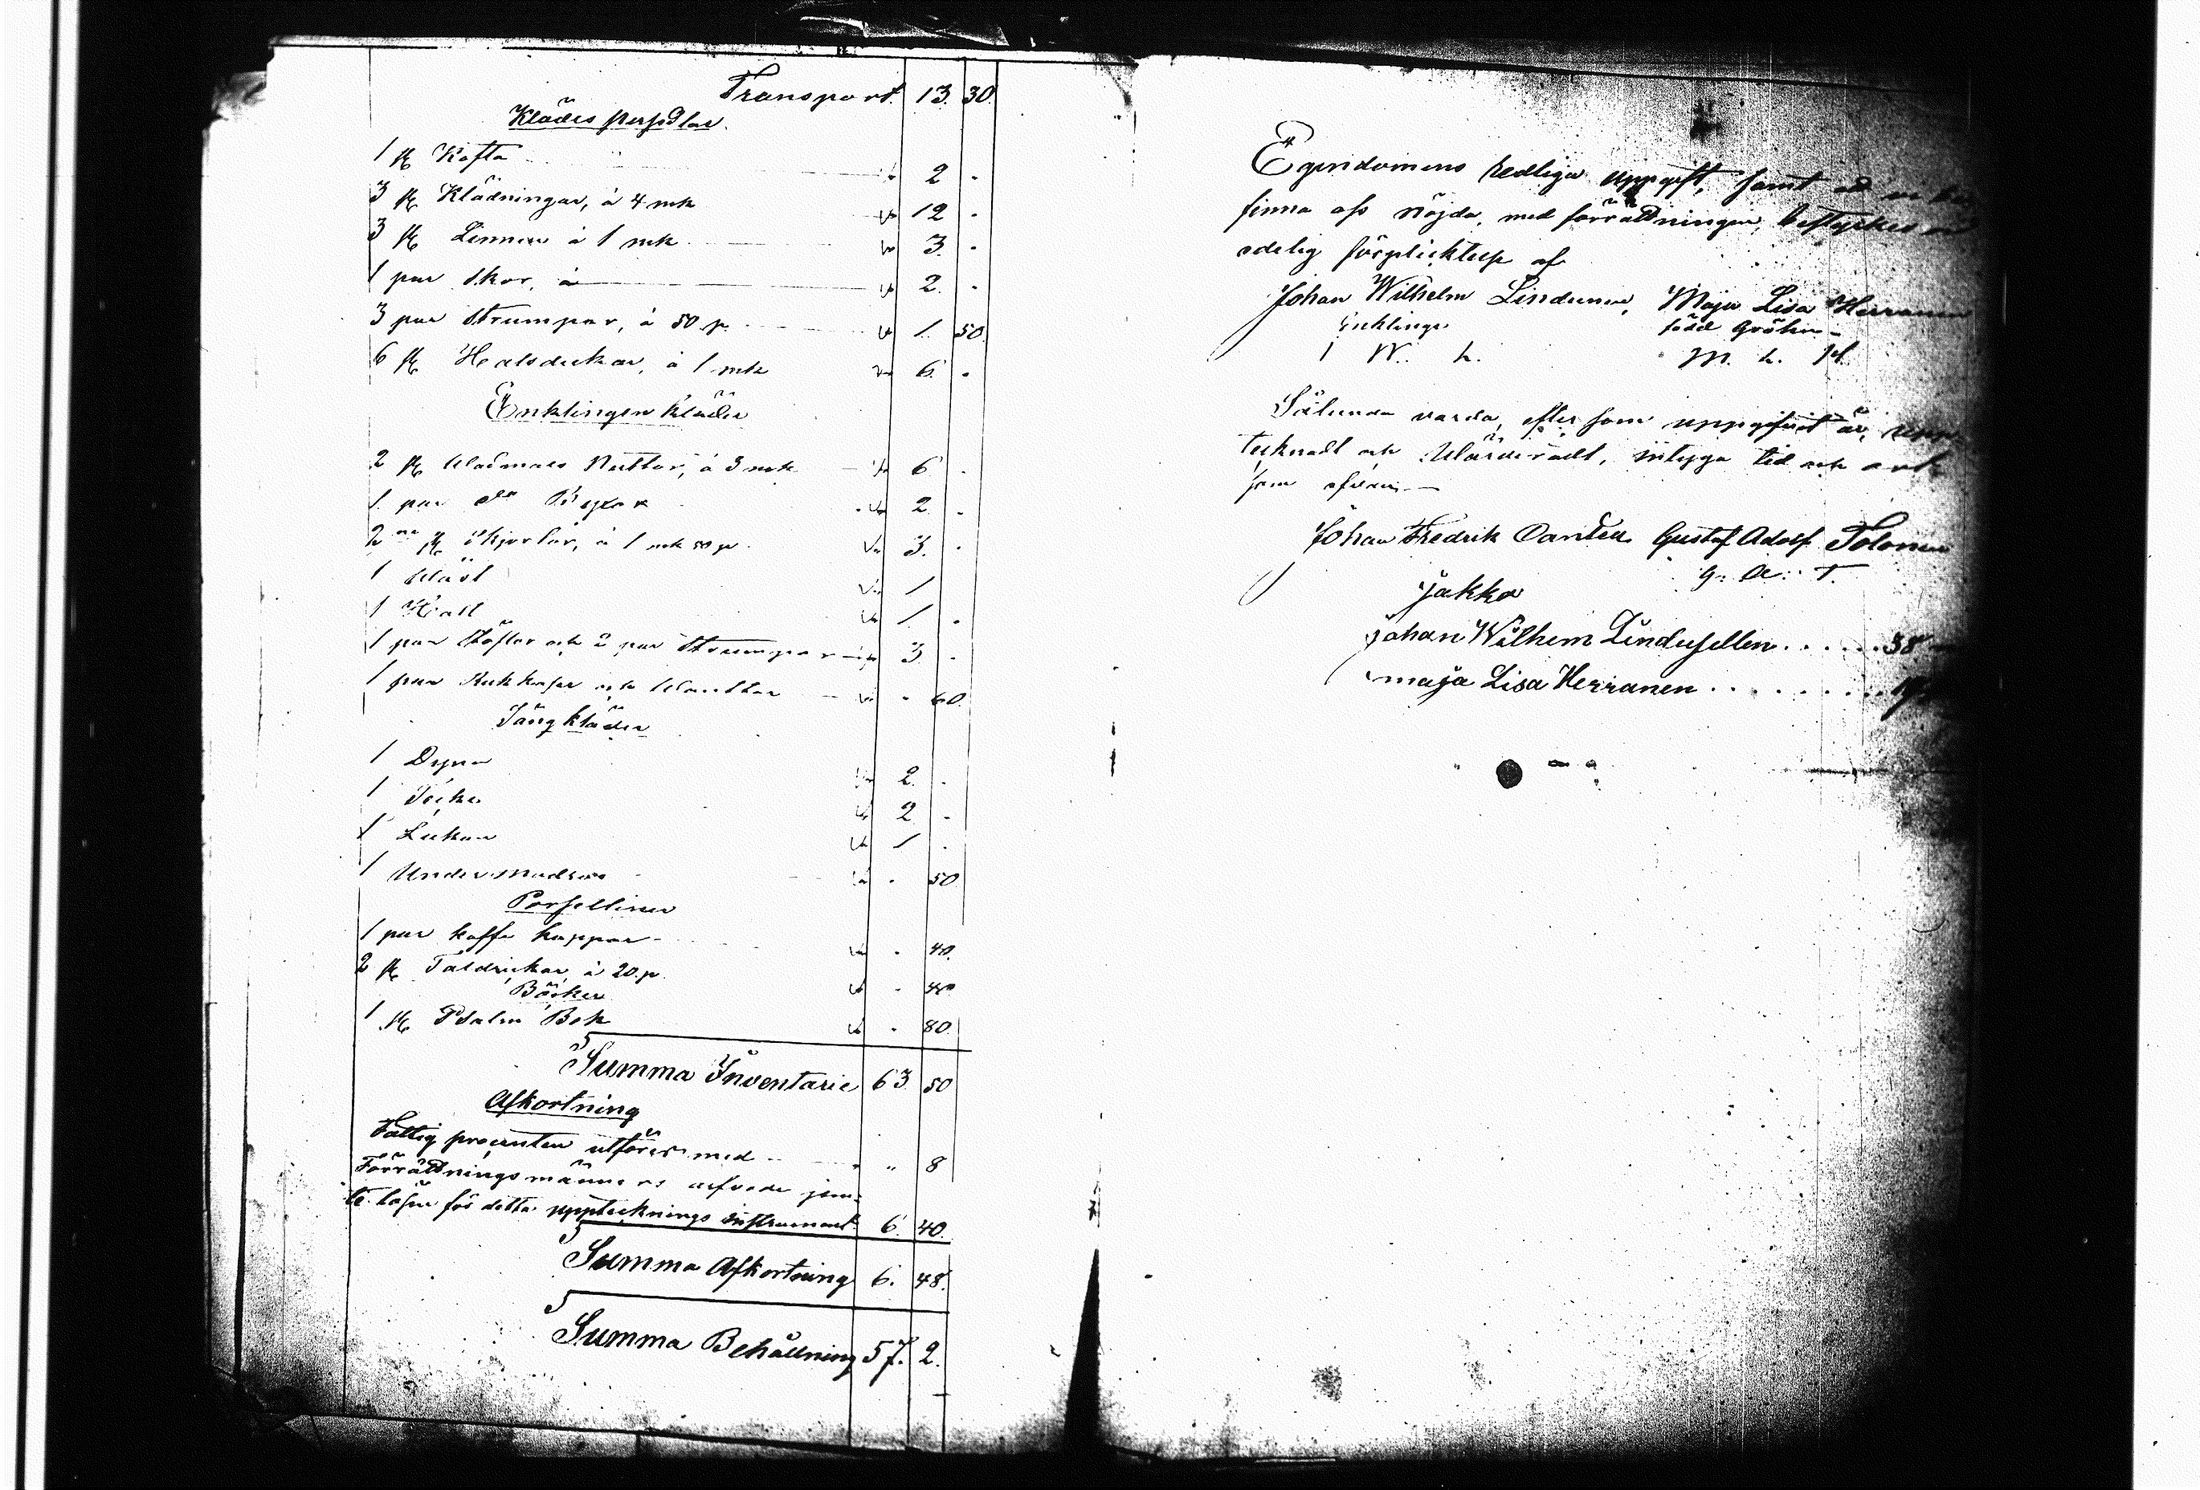 Transport. 13. 30.
Klädes persedlar.
1 st Kofta 2 -
3 st Klädningar, á 4 mk 12 -
3 st Linnen á 1 mk 3. -
1 par Skor, á 2. -
3 par Strumpor, á 50 p 1. 50.
6 st Halsdukar, á 1 mk 6. -
Enklingen kläder
2 st Wadmals Rockar, á 3 mk 6 -
1 par do Byxor 2. -
2 st Skjortor, á 1 mk 50 p. 3. -
1 Wäst 1
1 Hatt 1 -
1 par Stöflor och 2 par Strumpor 3 -
1 par och Wanttar - 60.
Säng kläder
1 Dyna 2. -
1 Täcke 2 -
1 Lakan 1 -
1 Under madrass - 50
Porselliner
1 par kaffe koppar - 40.
2 st Taldrickar, á 20. p. - 40
Böcker
1 st Psalm Bok - 80.
Summa Inventarie 63 50
Afkortning
Fattig procenten utföres med " 8
Förrättningsmännens arfvode jem-
te lösen för detta upptecknings instrument 6. 40.
Summa Afkortning 6. 48.
Summa Behållning 57. 2.
Egendomens redliga uppgift, samt att vi be
finna oss nöjda, med förrättningen, bestyrkes
edelig förplicktelse af
Johan Wilhelm Lindeman, Maja Lisa Herranen
Enklingen född Gröhn
J W. L. M. L. H.
Sålunda varda, efter som uppgifvit är, upp-
tecknadt och Wärderadt, intyga tid och ort
som ofvan.
Johan Fredrik Gustaf Adolf Tolonen
G. A. T.
Jakko
Johan Wilhem 38
maja Lisa Herranen